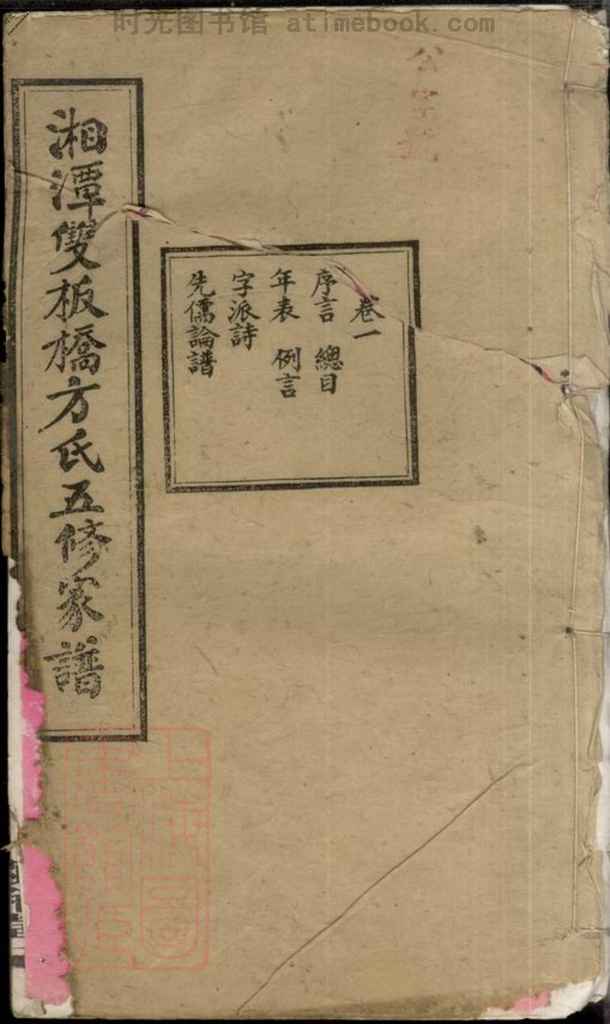 时光图书馆 atimebook.com
湘潭雙板橋方氏五修家譜
卷一
序言 總目
年表 例言
字派詩
先儒論譜